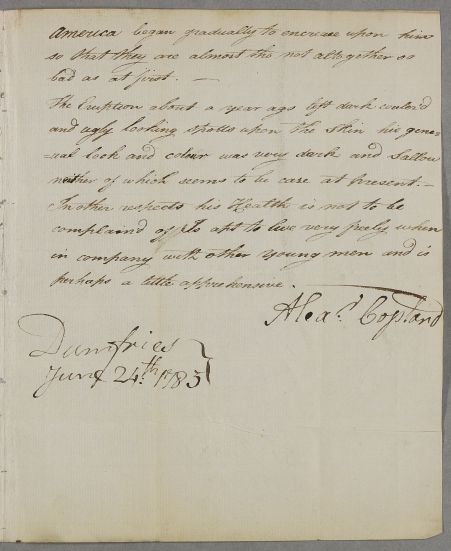 America began gradually to encrease upon him
so that they are almost tho not altogether so
bad as at first. —
The Eruption about a year ago left dark coulerd
and ugly looking spotts upon the skin his gene=
=ral look and colour was very dark and Sallow
neither of which seems to be case at present. —
In other respects his Health is not to be
complaind of, Is apt to live very freely when
in company with other young men and is
perhaps a little apprehensive.
Alexr. Copland
Dumfries
June 24.th 1785